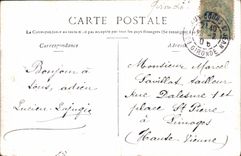 Gironde
CARTE POSTALE
La Correspondance au recto n'est pas acceptée par tous les pays étrangers (Se renseigner à la Poste)
Correspondance
Adresse
Bonjour à
tous, adieu
Lucien Lafugie
Monsieur Marcel
Pavillat tailleur
Rue Dalesme 1 et
place St Pierre
à Limoges
(Haute Vienne)
GIRONDE